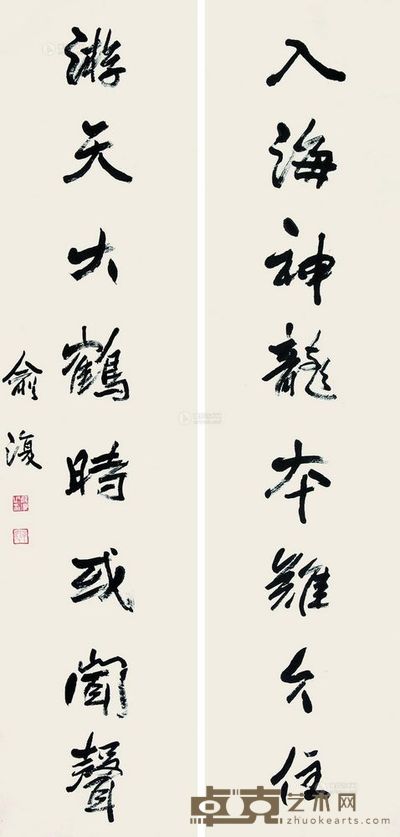 入海神龍本難久住
游天大鶴時或聞聲
俞復
卓克艺术网
www.zhuokearts.com